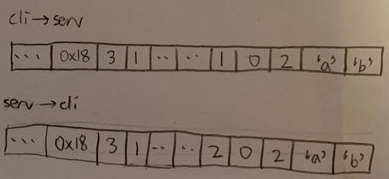 cli→serv
... 0x18 3 1 .. .. 1 0 2 'a' 'b'
serv→cli
... 0x18 3 1 .. .. 2 0 2 'a' 'b'